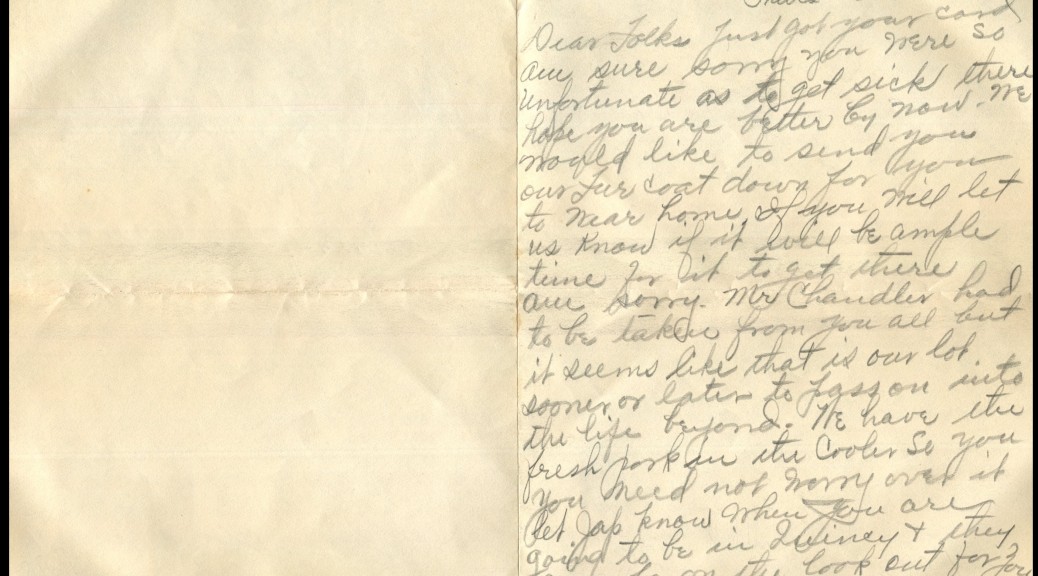 Thurs
Dear Folks Just got your card
am sure sorry you were so
unfortunate as to get sick there
hope you are better by now. We
would like to send you
our Fur coat down for you
to wear home. If you will let
us know if it will be ample
time for it to get there
am sorry. Mr Chandler had
to be taken from you all but
it seems like that is our lot.
sooner or later to pass on into
the life beyond. We have the
fresh pork in the Cooler So you
you need not worry over it
Let Jap know when you are
going to be in Quincy & they
on the look out for you